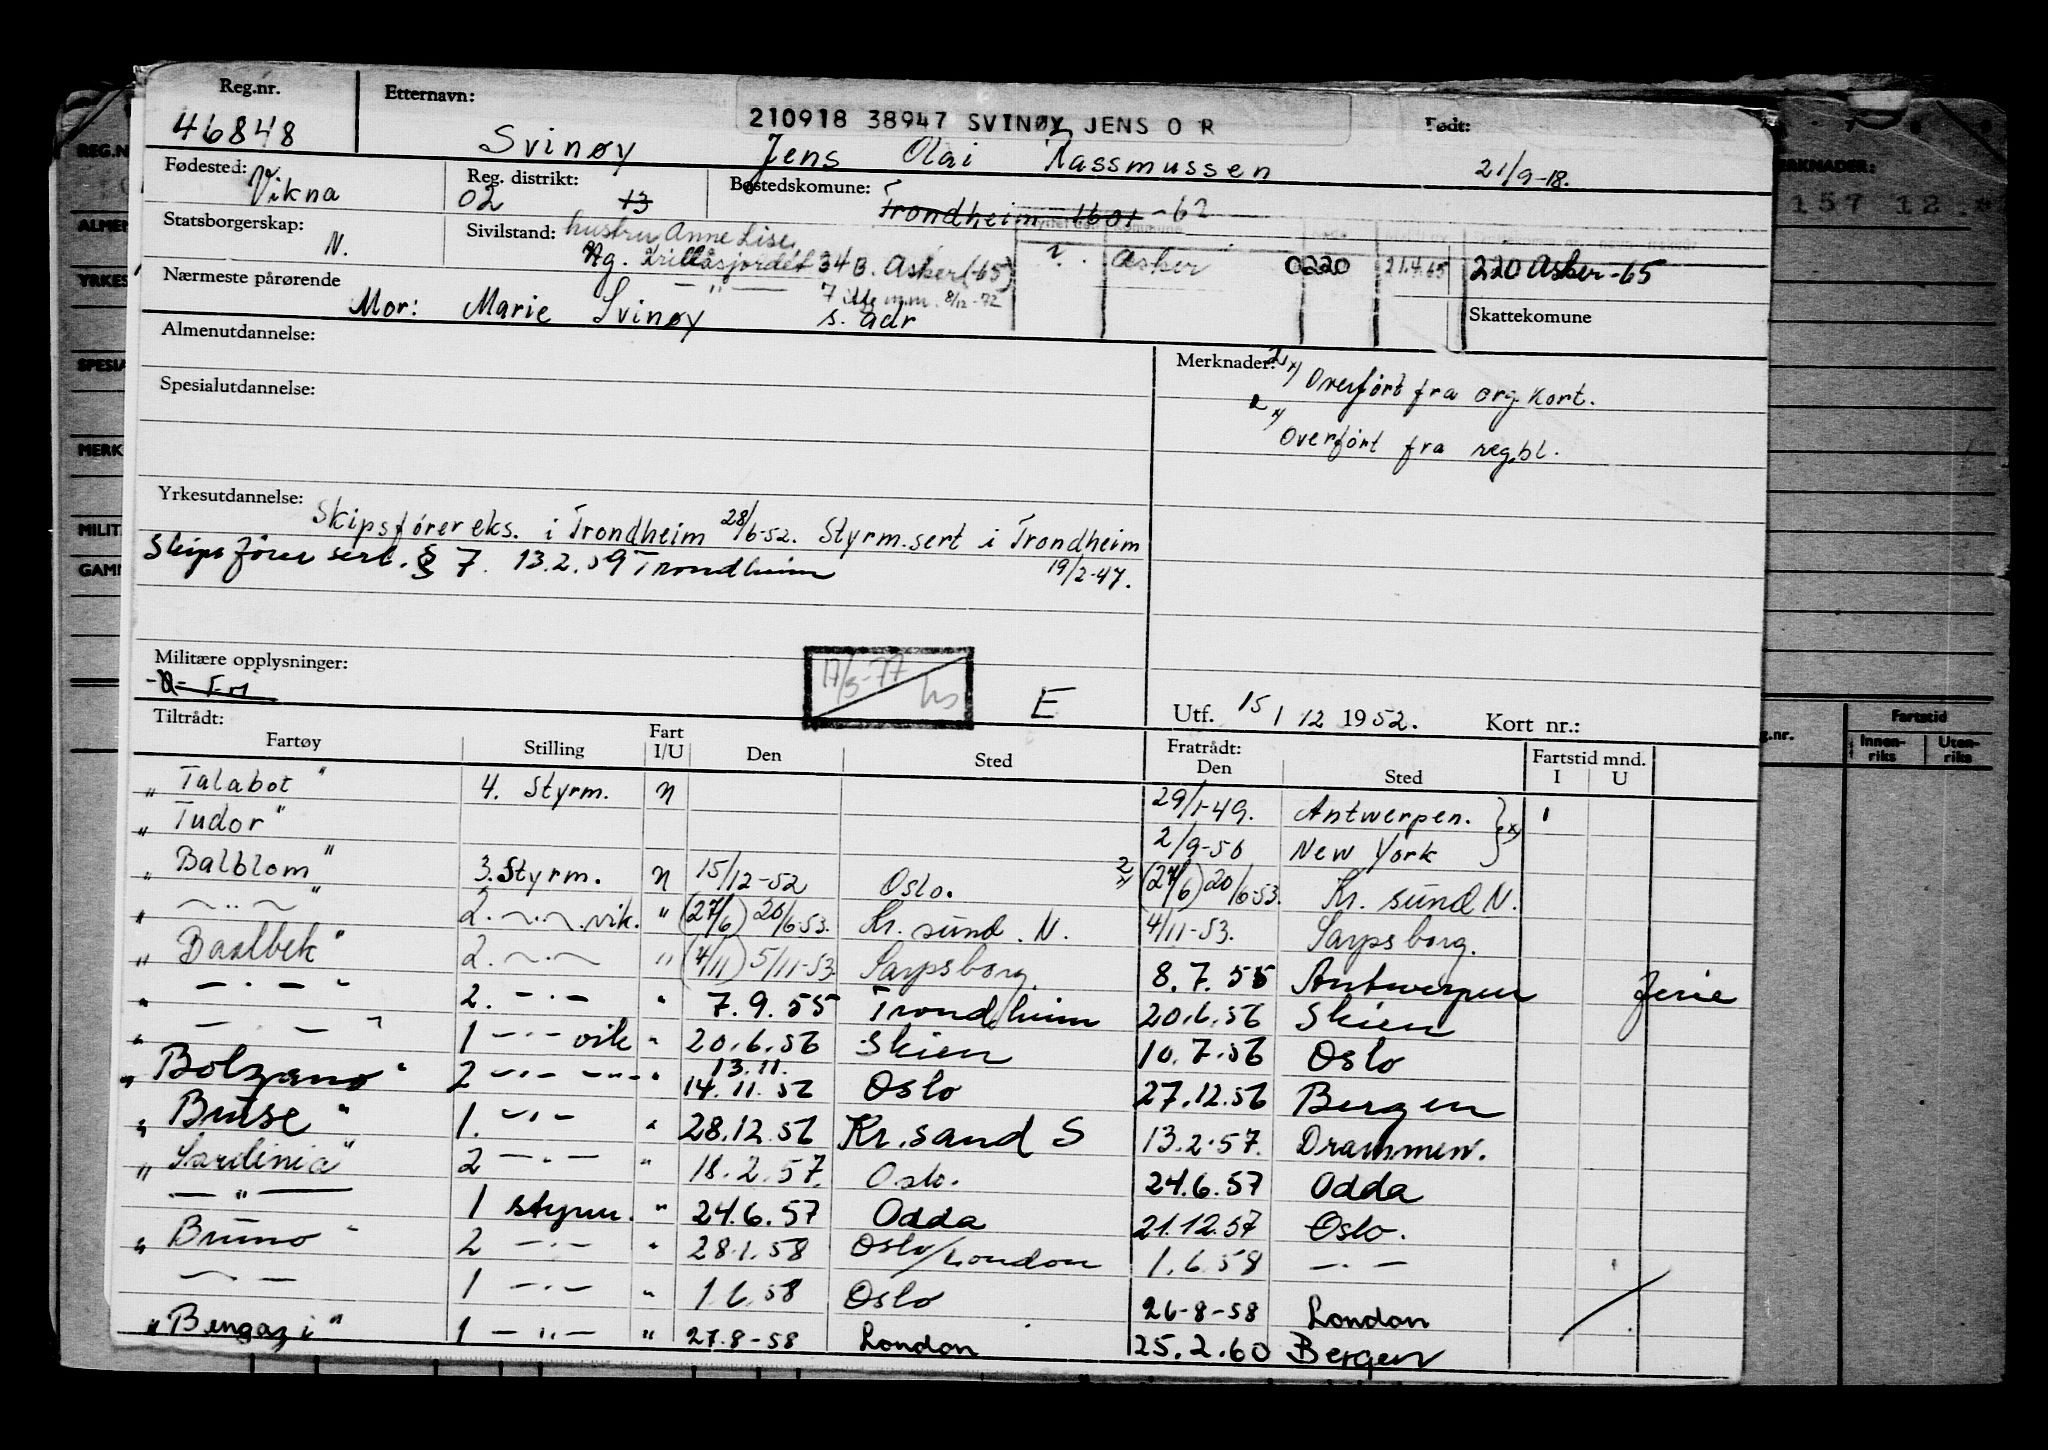 Reg.nr. Etternavn: 210918 38947 SVINØY JENS O R Født:
46848 Svinøy Jens Olai Rassmussen 21/9-18.
Fødested: Vikna Reg. distrikt: 02 13 Bostedskomune: Trondheim 1601 -62
Statsborgerskap: N. Sivilstand: hustru Anne Lise,
34 B. Asker (-65) Asker 0220 21.4.65 220 Asker-65
Nærmeste pårørende
8/12-72
Mor: Marie Svinøy s. adr Skattekomune
Almenutdannelse: Merknader: Overført fra org. kort.
Spesialutdannelse: Overført fra reg.bl.
Yrkesutdannelse: Skipsfører eks. i Trondheim 28/6-52. Styrm.sert i Trondheim
19/2-47.
Skipsfører sert. § 7. 13.2.59 Trondheim
Militære opplysninger: 17/3-77 E Utf. 15 / 12 1952. Kort nr.:
Tiltrådt: Fratrådt: Fartstid mnd.
Fartøy Stilling Fart I/U Den Sted Den Sted I U
" Talabot " 4. Styrm. N 29/1-49. Antwerpen.
" Tudor " 2/9-50 New York
" Balblom " 3. Styrm. N 15/12-52 Oslo. (27/6) 20/6-53. Kr. sund N.
" — " — " 2. — " — vik. " (27/6) 20/6-53. Kr. sund. N. 4/11-53. Sarpsborg.
" Baalbek " 2. — " — " (4/11) 5/11-53. Sarpsborg 8.7.55 Antwerpen Ferie
" — " — " 2. — " — " 7.9.55 Trondheim 20.6.56 Skien
" — " — " 1 — " — vik " 20.6.56 Skien 10.7.56 Oslo
" Bolzano " 2 — " — " 13.11. 14.11.56 Oslo 27.12.56 Bergen
" Bruse " 1. — " — " 28.12.56 Kr.sand S 13.2.57. Drammen.
" Sardinia " 2 — " — " 18.2.57. Oslo. 24.6.57 Odda
— " — 1 styrm. " 24.6.57 Odda 21.12.57 Oslo.
" Bruno " 2 — " — " 28.1.58 Oslo/London 1.6.58 — " —
— " — 1 — " — " 1.6.58 Oslo 26-8-58 London
" Bengazi " 1 — " — " 27.8-58 London 25.2.60 Bergen
REG.N
ALMEN
YRKES
SPESIA
MERK
MILIT
GAM
ERKNADER:
157 12
g.nr. Fartstid
Innen-riks Uten-riks